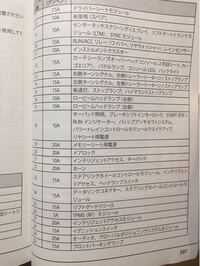 7.5A ドライバーシートモジュール
10A 未使用 (スペア)
10A センタースタックスクリーンディスプレイ、リフトゲートトランクモ
ジュール (LTM)、SYNC モジュール
10A RUN/ACC リレー (ワイパー、リヤウォッシャー)、レインセンサー
10A インストルメントクラスター
15A
15A 右側ターンシグナル、右側トレーラーターン/ストップランプ
15A 左側ターンシグナル、左側トレーラーターン/ストップランプ
15A 後退灯、ストップランプ、ハイマウントストップランプ
10A ロービームヘッドランプ (右側)
10A ロービームヘッドランプ (左側)
10A キーパッド照明、ブレーキシフトインターロック、START ボタン
RUN インジケーター、パッシブアンチセフトシステム、
パワートレインコントロールモジュールウェイクアップ、
リヤシート用電源
20A メモリーシート用電源
20A ドアロック
10A インテリジェントアクセス、キーパッド
20A ホーン
10A ステアリングホイールコントロールモジュール、インテリジェン
トアクセス、ヘッドランプスイッチ
15A データコネクター、ステアリングホイールコントロールモジュー
ル
15A リフトゲートリリース
5A TPMS (RF) モジュール
20A インテリジェントアクセスモジュール
15A イグニッションスイッチ
20A
15A フロントパーキングランプ
297